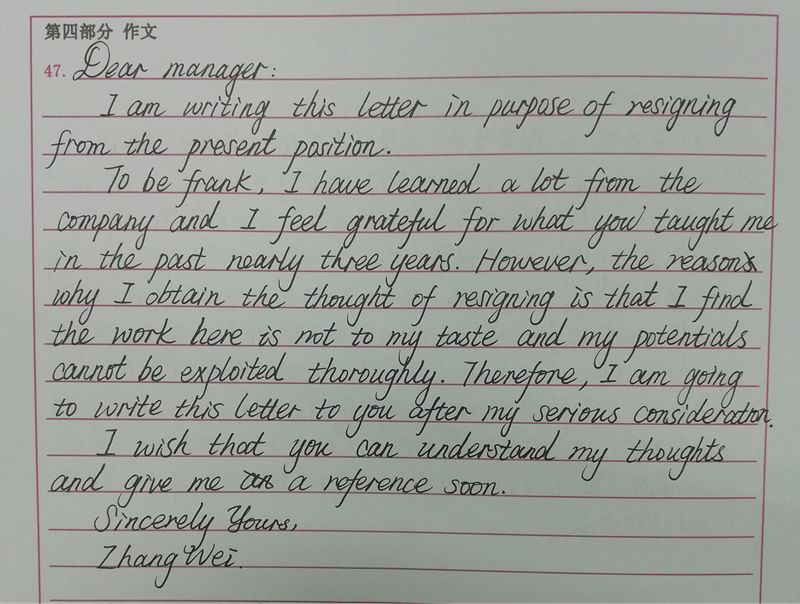 第四部分 作文
47. Dear manager:
I am writing this letter in purpose of resigning
from the present position.
To be frank, I have learned a lot from the
company and I feel grateful for what you taught me
in the past nearly three years. However, the reason
why I obtain the thought of resigning is that I find
the work here is not to my taste and my potentials
cannot be exploited thoroughly. Therefore, I am going
to write this letter to you after my serious consideration.
I wish that you can understand my thoughts
and give me a reference soon.
Sincerely Yours,
Zhang Wei.